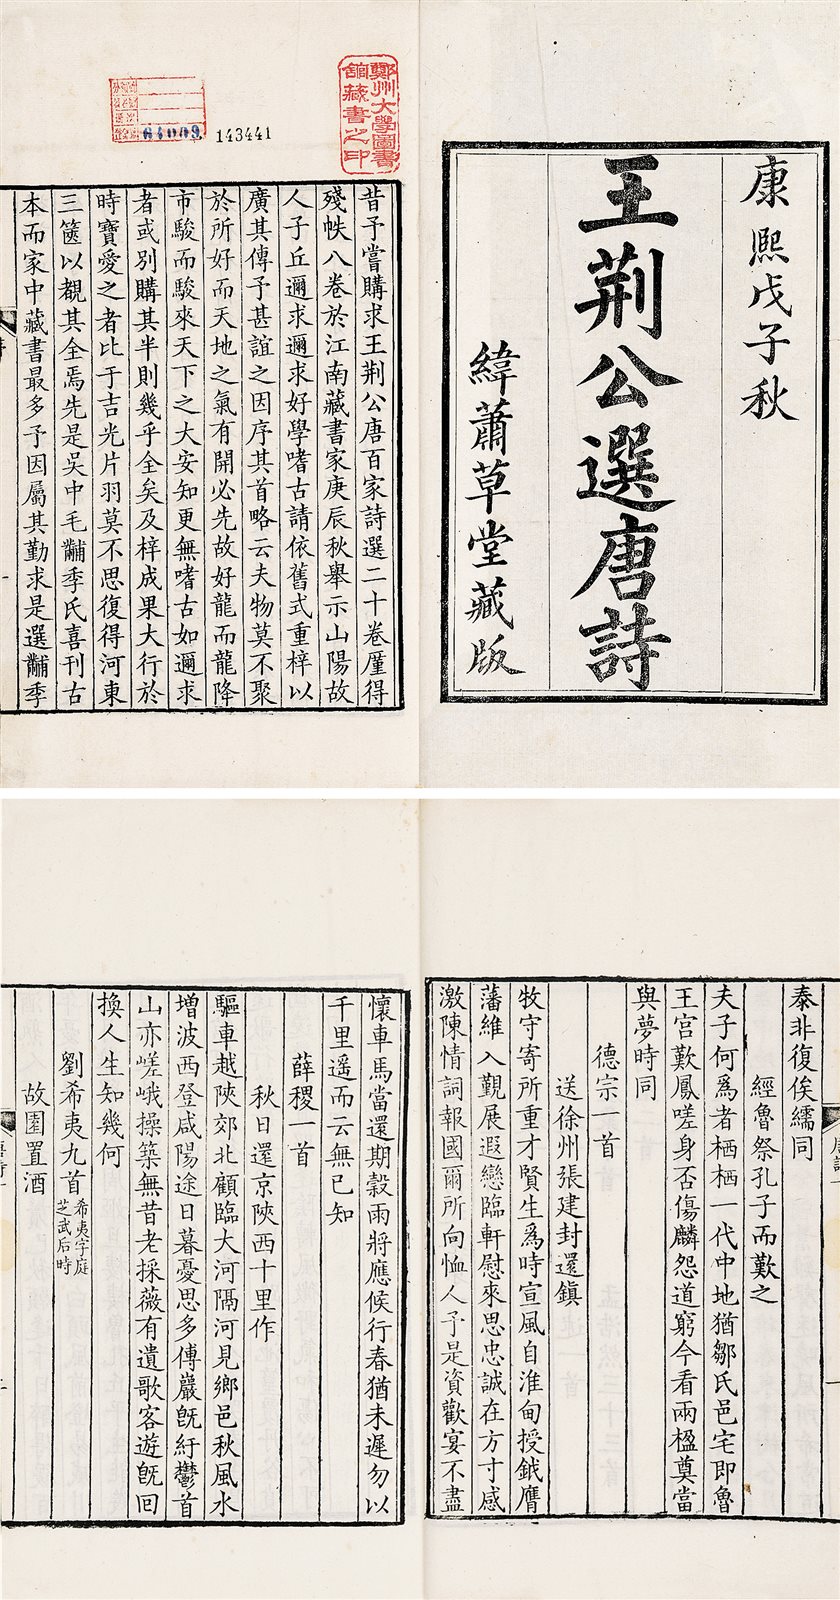 康熙戊子秋
王荆公選唐詩
緯蕭草堂藏版
鄭州大學圖書
館藏書之印
64009
143441
昔予嘗購求王荆公唐百家詩選二十卷廑得
殘帙八卷於江南藏書家庚辰秋舉示山陽故
人子丘邇求邇求好學嗜古請依舊式重梓以
廣其傳予甚誼之因序其首略云夫物莫不聚
於所好而天地之氣有開必先故好龍而龍降
市駿而駿來天下之大安知更無嗜古如邇求
者或別購其半則幾乎全矣及梓成果大行於
時寶愛之者比于吉光片羽莫不思復得河東
三篋以覩其全焉先是吳中毛黼季氏喜刊古
本而家中藏書最多予因屬其勤求是選黼季
泰非復俟繻同
經魯祭孔子而歎之
夫子何爲者栖栖一代中地猶鄒氏邑宅即魯
王宮歎鳳嗟身否傷麟怨道窮今看兩楹奠當
與夢時同
德宗一首
送徐州張建封還鎮
牧守寄所重才賢生爲時宣風自淮甸授鉞膺
藩維入覲展遐戀臨軒慰來思忠誠在方寸感
激陳情詞報國爾所向恤人予是資歡宴不盡
懷車馬當還期穀雨將應候行春猶未遲勿以
千里遥而云無已知
薛稷一首
秋日還京陝西十里作
驅車越陝郊北顧臨大河隔河見鄉邑秋風水
増波西登咸陽途日暮憂思多傅巖旣紆鬱首
山亦嵯峨操築無昔老採薇有遺歌客遊旣回
換人生知幾何
劉希夷九首希夷字庭芝武后時
故園置酒